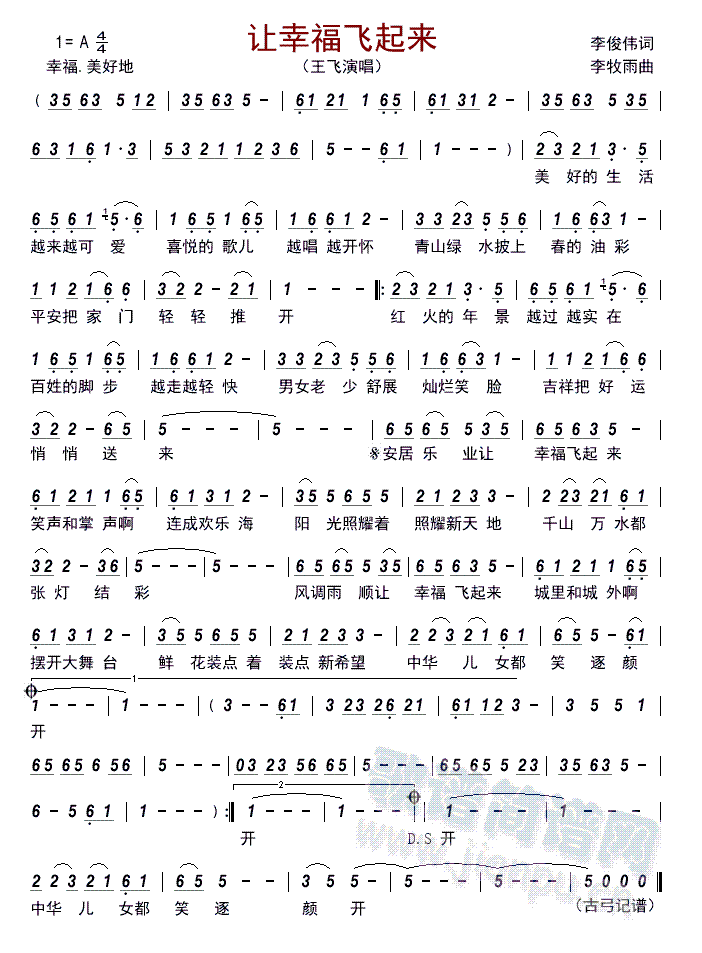 让幸福飞起来
1= A 4/4
李俊伟词
幸福.美好地
（王飞演唱）
李牧雨曲
( 35 63 5 12 | 35 63 5 - | 61 21 1 65 | 61 31 2 - | 35 63 5 35 |
6 3 1 6 1·3 | 5 3 2 1 1 2 3 6 | 5 - - 6 1 | 1 - - - ) | 2 3 2 1 3· 5 |
美 好的 生 活
6 5 6 1 5·6 | 1 6 5 1 65 | 1 6 6 1 2 - | 3 3 23 5 56 | 1 6 63 1 - |
越来越可 爱 喜悦的 歌儿 越唱 越开怀 青山绿 水披上 春的 油彩
1 1 2 1 6 6 | 3 2 2 - 21 | 1 - - - ‖: 2 3 2 1 3· 5 | 6 5 6 1 5· 6 |
平安把 家 门 轻 轻 推 开 红 火的 年 景 越过 越实 在
1 6 5 1 65 | 1 6 6 1 2 - | 3 3 2 3 5 5 6 | 1 6 63 1 - | 1 1 2 1 6 6 |
百姓的脚 步 越走越轻 快 男女老 少 舒展 灿烂笑 脸 吉祥把 好 运
3 2 2 - 65 | 5 - - - | 5 - - - | 6 5 65 5 35 | 6 5 6 3 5 - |
悄 悄 送 来 𝄋安居 乐 业让 幸福飞起 来
6 1 2 1 1 65 | 6 1 3 1 2 - | 35 5 6 5 5 | 2 1 2 3 3 - | 2 23 21 6 1 |
笑声和掌 声啊 连成欢乐 海 阳 光照耀着 照耀新天 地 千山 万 水都
32 2 - 36 | 5 - - - | 5 - - - | 6 5 65 5 35 | 6 5 6 3 5 - | 6 1 2 1 1 65 |
张 灯 结 彩 风调雨 顺让 幸福 飞起来 城里和城 外啊
6 1 3 1 2 - | 3 5 5 6 5 5 | 2 1 2 3 3 - | 2 2 3 2 1 6 1 | 6 5 5 - 61 |
摆开大舞 台 鲜 花装点 着 装点 新希望 中华 儿 女都 笑 逐 颜
1
1 - - - | 1 - - - | ( 3 - - 61 | 3 23 26 21 | 61 12 3 - | 3 5 5 1 |
开
65 65 6 56 | 5 - - - | 03 23 56 65 | 5 - - - | 65 65 5 23 | 35 63 5 - |
6 - 5 61 | 1 - - - ) :‖ 1 - - - | 1 - - - | 1 - - - | 1 - - - |
2
开 D.S 开
2 2 3 2 1 6 1 | 6 5 5 - | 3 - - 5 | 5 - - - | 5 - - - | 5 0 0 0 ‖
中华 儿 女都 笑 逐 颜 开
（古弓记谱）
歌谱简谱网